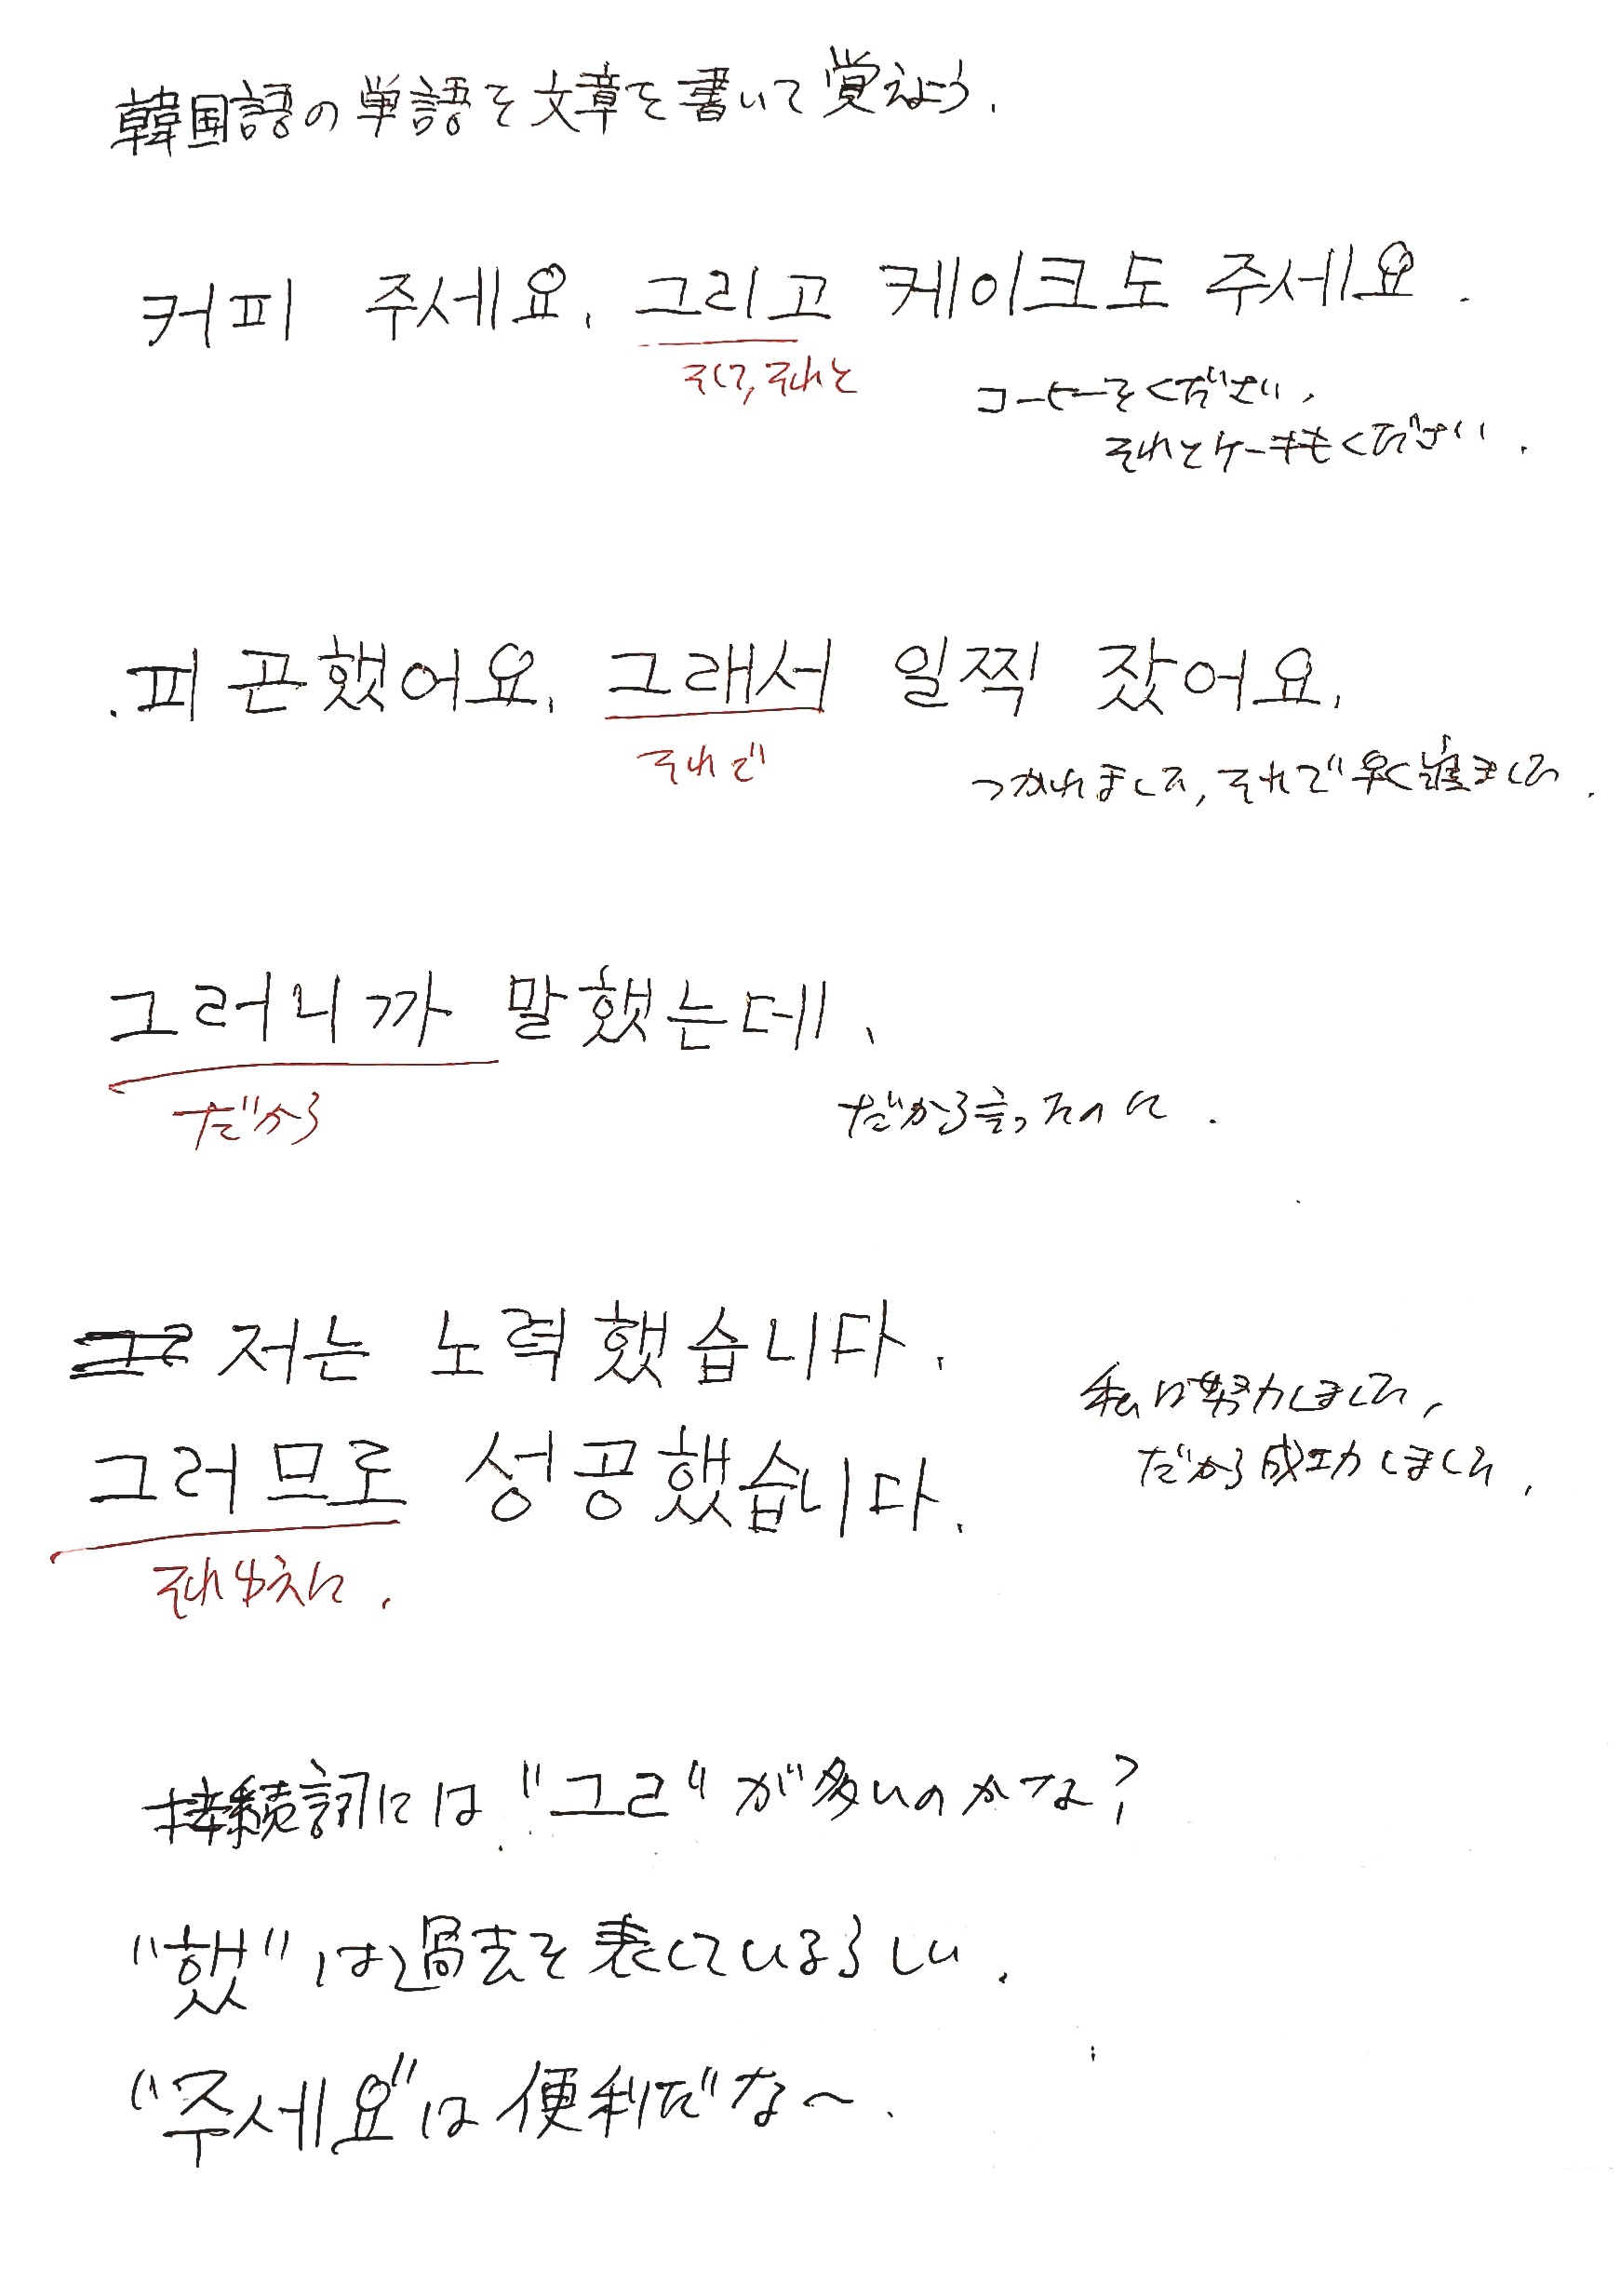 韓国語の単語を文章を書いて覚えよう.
커피 주세요. 그리고 케이크도 주세요.
そして, それと
コーヒーをください,
それとケーキもください.
.피곤했어요. 그래서 일찍 잤어요.
それで
つかれました, それで早く寝ました.
그러니까 말했는데.
だから
だから言ったのに.
저는 노력했습니다.
그러므로 성공했습니다.
私は努力しました,
だから成功しました.
それゆえに.
接続詞には "그러" が多いのかな?
"했" は過去を表しているらしい.
"주세요" は便利だな〜.